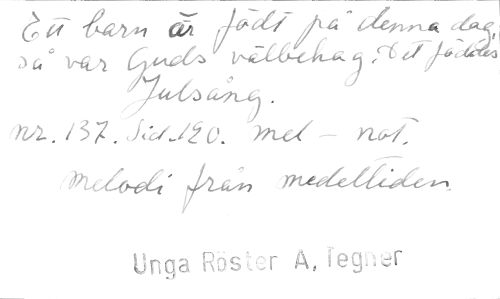 Ett barn är född på denna dag,
så var Guds välbehag. Det föddes
Julsång.
nr. 137. Sid. 120. mel - not.
melodi från medeltiden.
Unga Röster A. Tegner